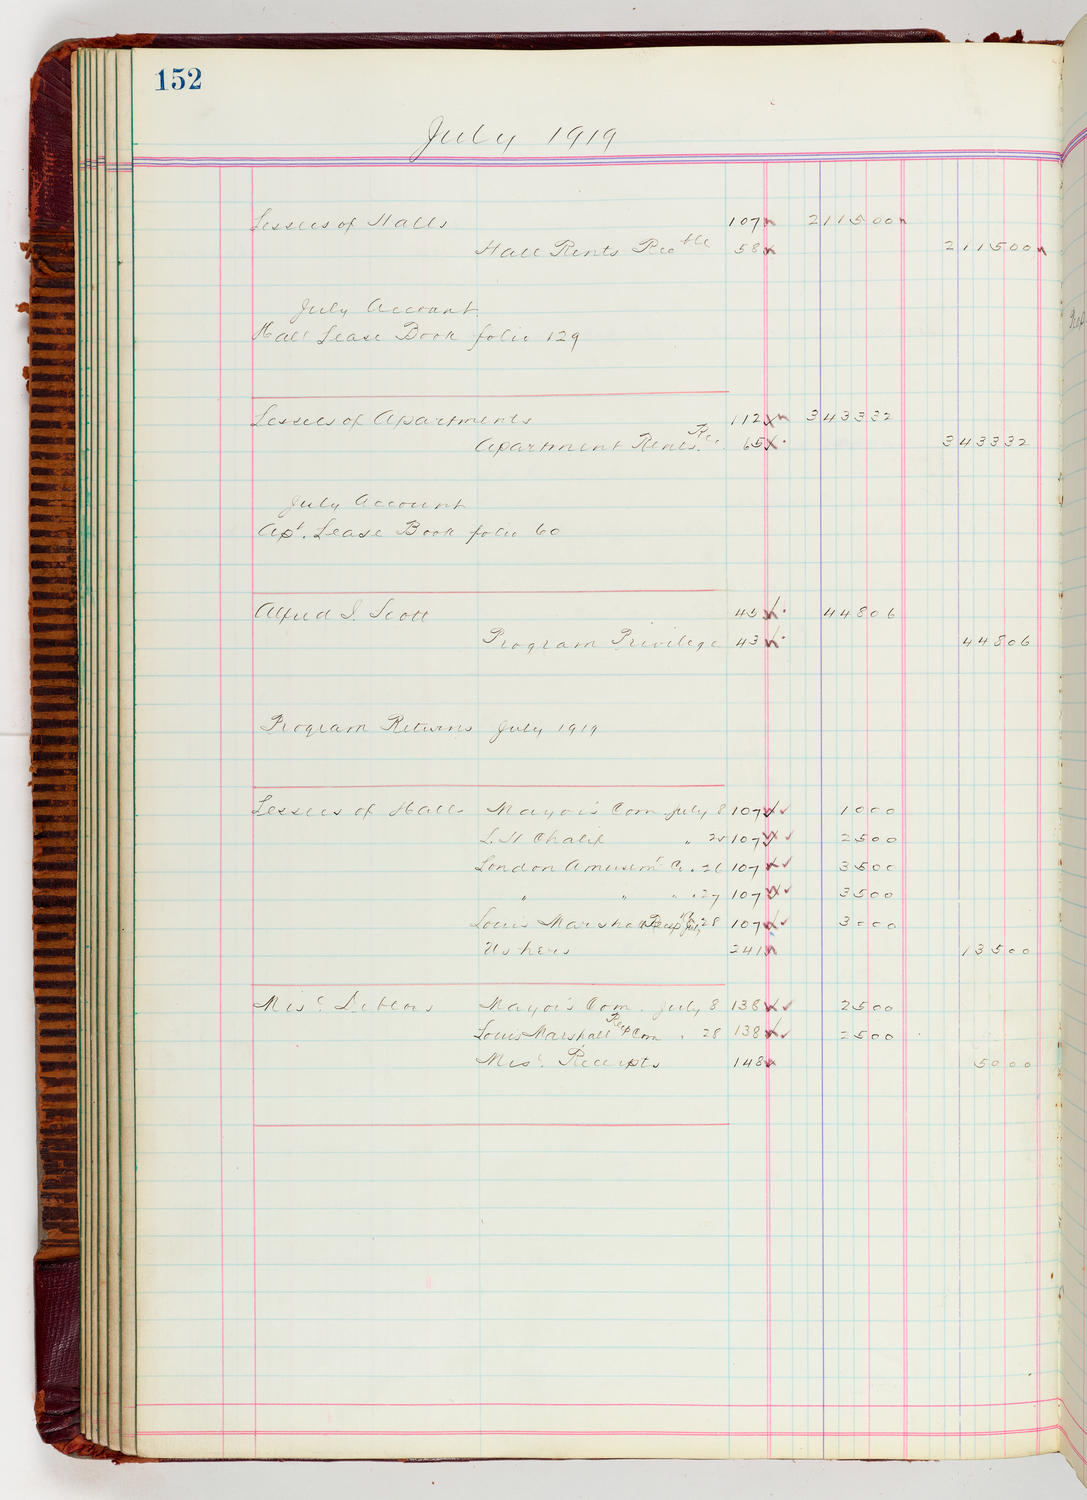 152
July 1919
Lessees of Halls 107 211500
Hall Rents Rec ble 58 211500
July Account.
Hall Lease Book folio 129
Lessees of Apartments 112 343332
Apartment Rents Rec. 65 343332
July Account
Apt. Lease Book folio 60
Alfred I. Scott 45 44806
Program Privilege 43 44806
Program Returns July 1919
Lessees of Halls Mayor's Com July 8 107 1000
L. H Chalif " 25 107 2500
London Amusemt Co. " 26 107 3500
" " " " 27 107 3500
Louis Marshall Recep Com July 28 107 3000
Ushers 241 13500
Misc. Debtors Mayor's Com. July 8 138 2500
Louis Marshall Recp Com " 28 138 2500
Misc. Receipts 148 5000